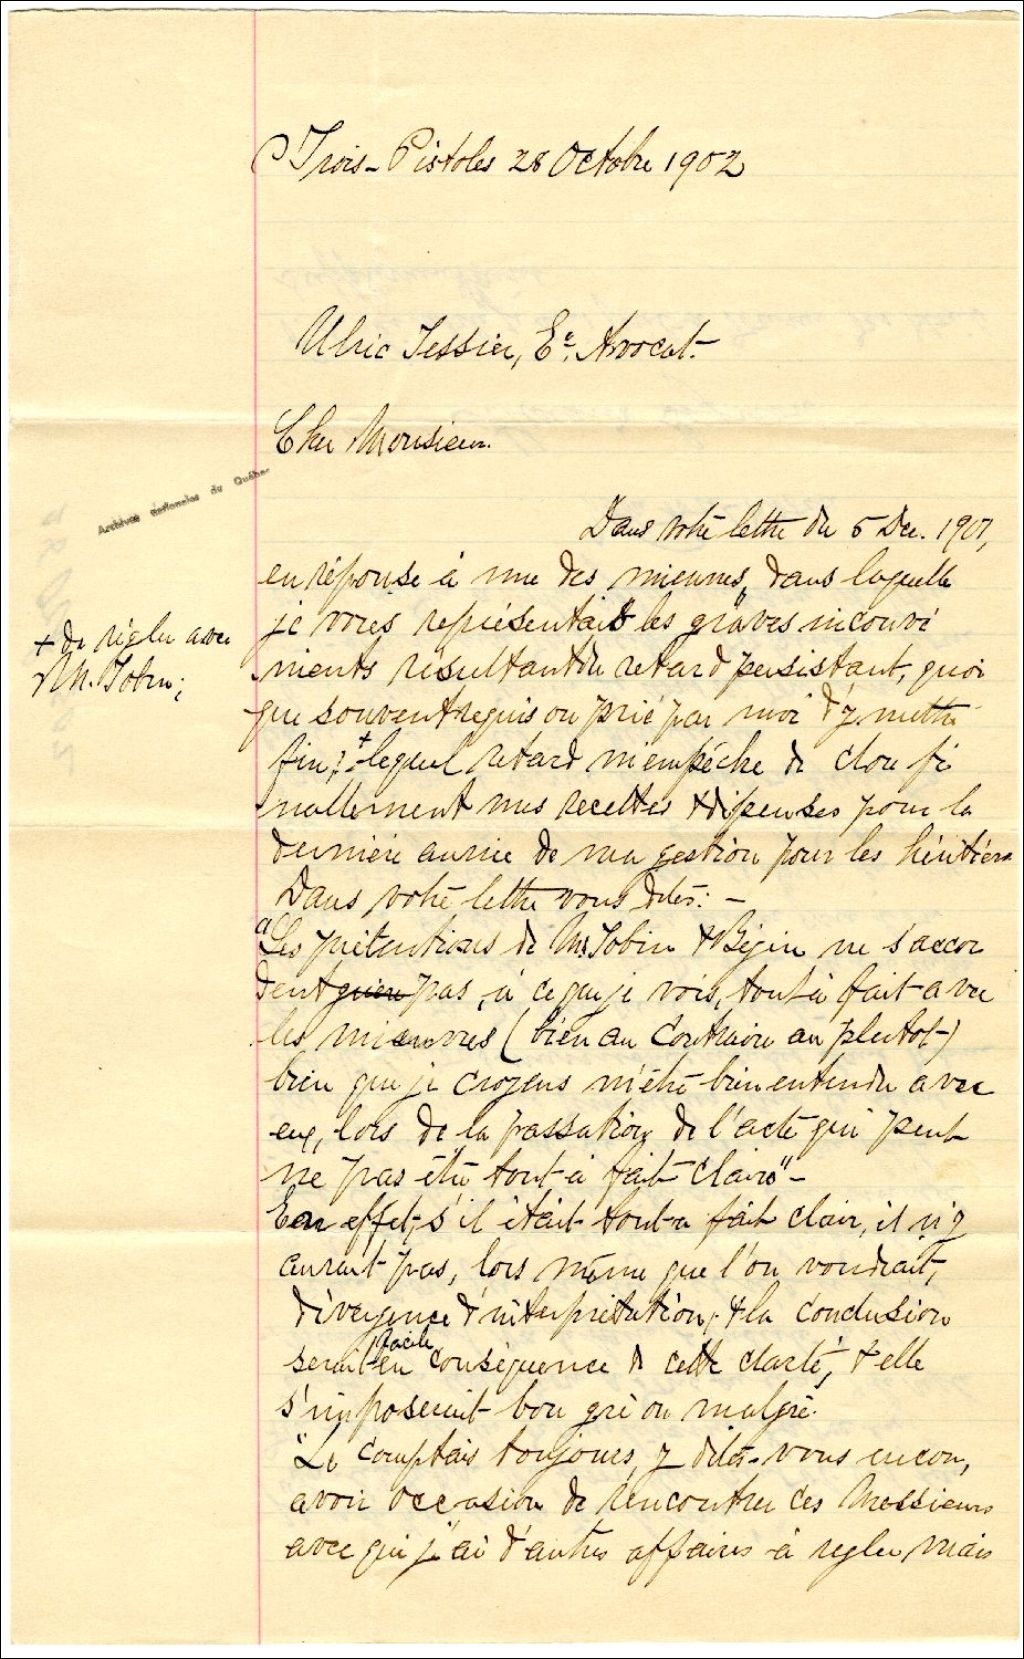 Trois-Pistoles 28 Octobre 1902
Ulric Tessier, Ec. Avocat.
Cher Monsieur.
Archives nationales du Québec
Dans votre lettre du 5 Dec. 1901,
en réponse à une des miennes, dans laquelle
je vous représentais les graves inconvé
nients résultant du retard persistant, quoi
que souvent requis ou prié par moi d'y mettre
+ de régler avec
M. Tobin;
fin; + lequel retard m'empêche de clore fi
nallement mes recettes & dépenses pour la
dernière année de ma gestion pour les héritiers
Dans votre lettre vous dites: -
"Les prétentions de Ms Tobin & Bégin ne s'accor
dent guère pas, à ce que je vois, tout à fait avec
les miennes (bien au contraire au plutot)
bien que je croyais m'être bien entendu avec
eux, lors de la passation de l'acte qui peut
ne pas être tout à fait clair" -
En effet, s'il était tout à fait clair, il n'y
aurait pas, lors même que l'on voudrait,
divergence d'interprétation, & la conclusion
serait facile en conséquence de cette clarté, & elle
s'imposerait bon gré ou malgré.
"Je comptais toujours, dites-vous encore,
avoir occasion de rencontrer ces Messieurs
avec qui j'ai d'autres affaires à régler, mais